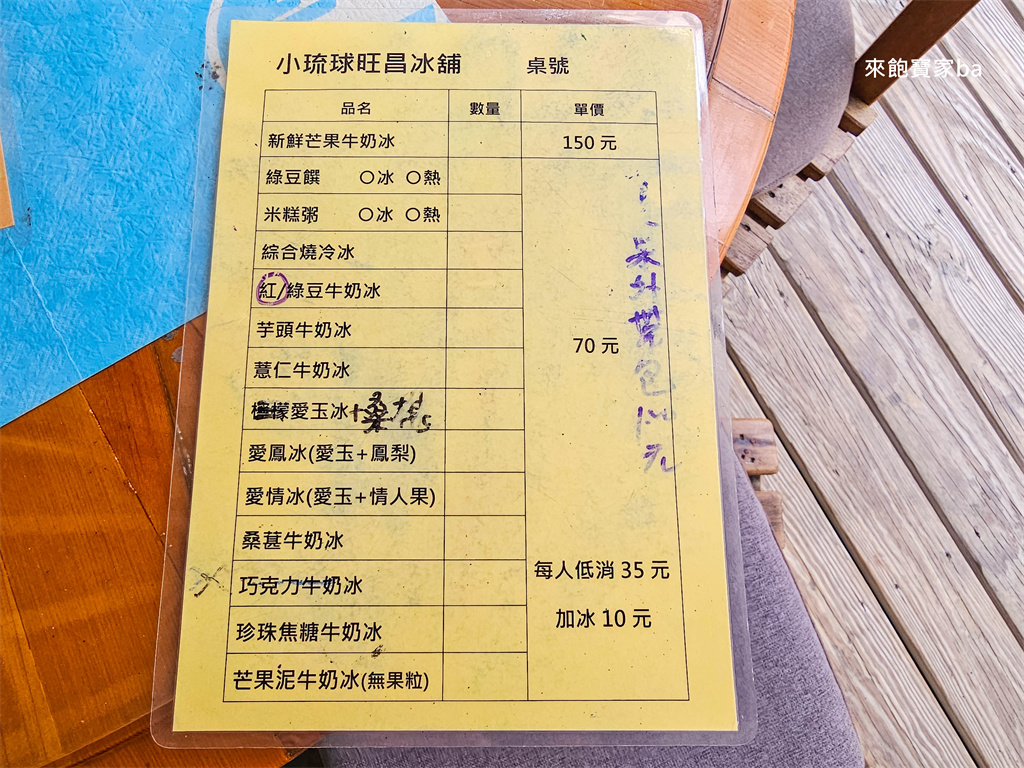 來飽寶家ba
小琉球旺昌冰舖 桌號
品名 數量 單價
新鮮芒果牛奶冰 150 元
綠豆饌 ○冰 ○熱
米糕粥 ○冰 ○熱
綜合燒冷冰
紅/綠豆牛奶冰
芋頭牛奶冰 70 元
薏仁牛奶冰
檸檬愛玉冰+桑椹
愛鳳冰(愛玉+鳳梨)
愛情冰(愛玉+情人果)
桑葚牛奶冰
巧克力牛奶冰 每人低消 35 元
珍珠焦糖牛奶冰 加冰 10 元
芒果泥牛奶冰(無果粒)
外帶包
元